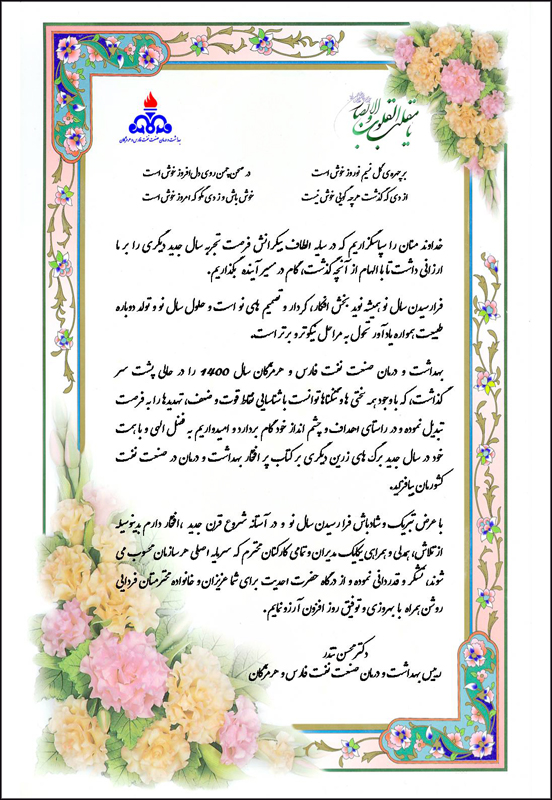 یا مقلب القلوب والابصار
بهداشت و درمان صنعت نفت فارس و هرمزگان
بر چهره‌ی گل نسیم نوروز خوش است
در صحن چمن روی دل افروز خوش است
از دی که گذشت هر چه گویی خوش نیست
خوش باش و ز دی مگو که امروز خوش است
خداوند منان را سپاسگزاریم که در سایه الطاف بیکرانش فرصت تجربه سال جدید دیگری را بر ما
ارزانی داشت تا با الهام از آنچه گذشت، گام در مسیر آینده بگذاریم.
فرا رسیدن سال نو همیشه نوید بخش افکار، کردار و تصمیم های نو است و حلول سال نو و تولد دوباره
طبیعت همواره یادآور تحول به مراحل نیکوتر و برتر است.
بهداشت و درمان صنعت نفت فارس و هرمزگان سال 1400 را در حالی پشت سر
گذاشت، که با وجود همه سختی ها و تنگناها توانست با شناسایی نقاط قوت و ضعف، تهدیدها را به فرصت
تبدیل نموده و در راستای اهداف و چشم انداز خود گام بردارد و امیدواریم به فضل الهی و با همت
خود در سال جدید برگ های زرین دیگری بر کتاب پر افتخار بهداشت و درمان در صنعت نفت
کشورمان بیافزاید.
با عرض تبریک و شادباش فرا رسیدن سال نو و در آستانه شروع قرن جدید ،افتخار دارم بدینوسیله
از تلاش، همدلی و همراهی یکایک مدیران و تمامی کارکنان محترم که سرمایه اصلی هر سازمان محسوب می
شوند، تشکر و قدردانی نموده و از درگاه حضرت احدیت برای شما عزیزان و خانواده محترمتان فردایی
روشن همراه با بهروزی و توفیق روز افزون آرزو نمایم.
دکتر محسن تندر
رییس بهداشت و درمان صنعت نفت فارس و هرمزگان